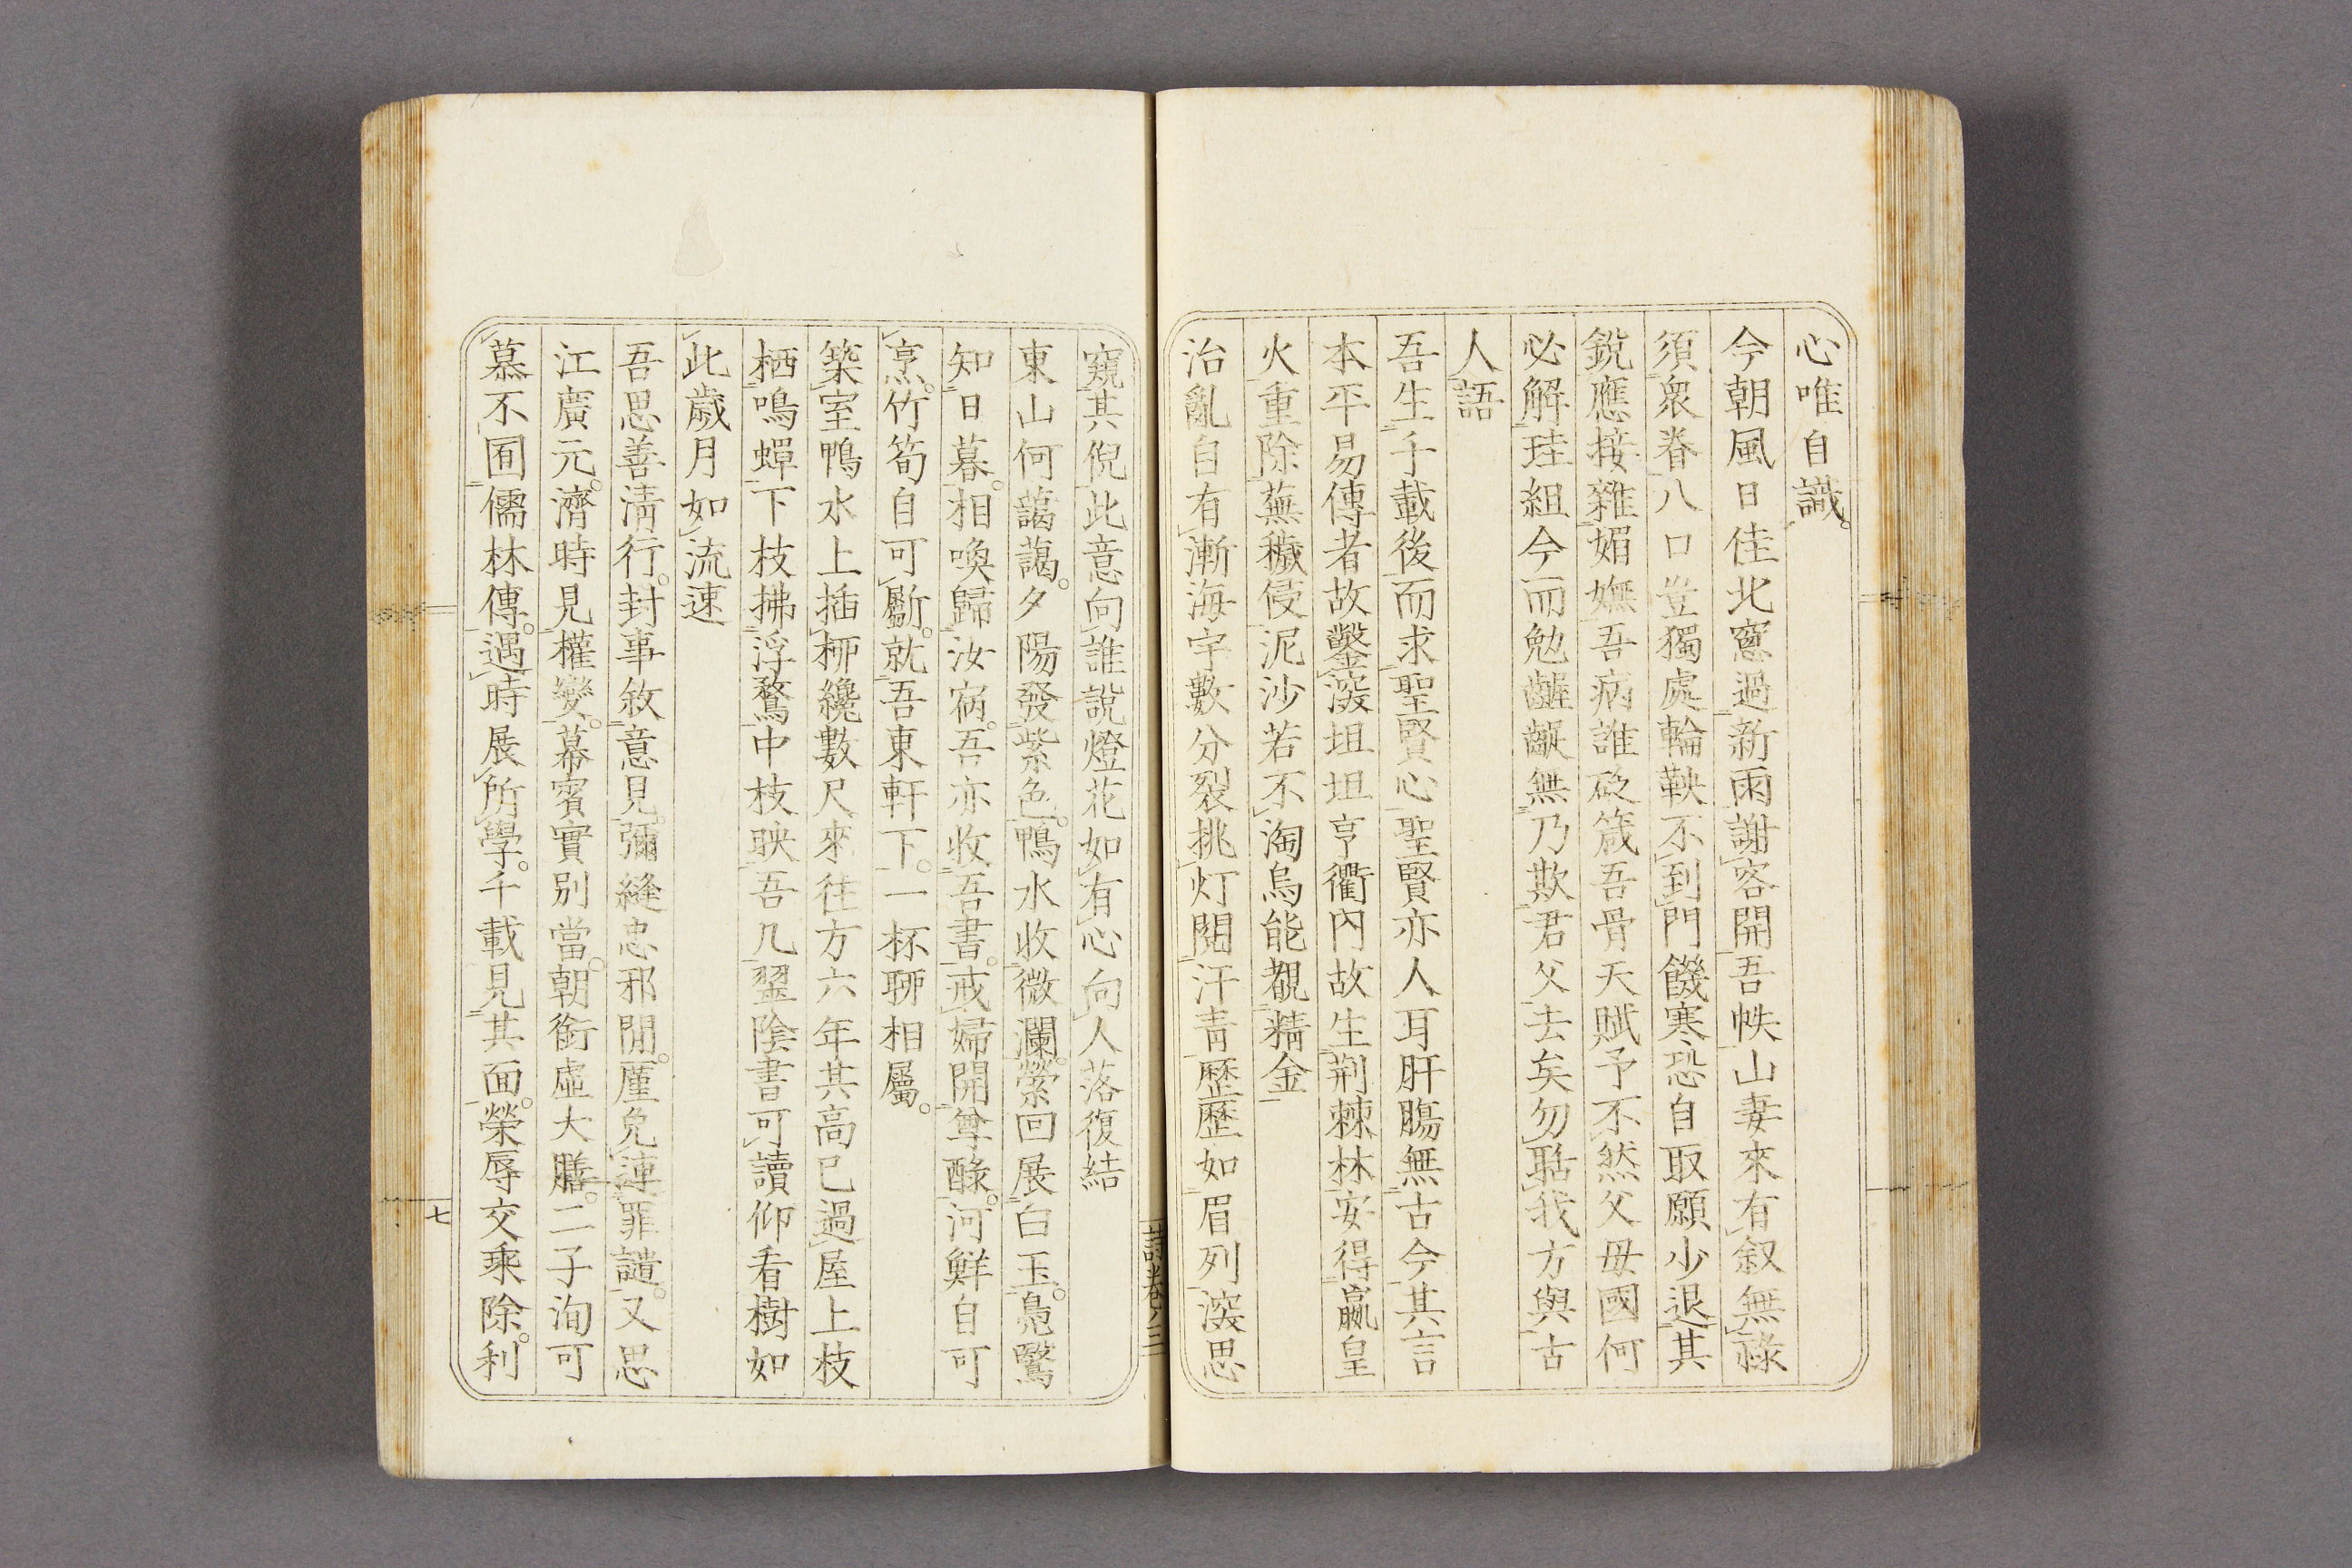 心唯自識。
今朝風日佳北窻過新雨謝客開吾帙山妻來有叙無祿
須衆眷八口豈獨處輪鞅不到門饑寒恐自取願少退其
銳應接雜媚嫵吾病誰砭箴吾骨天賦予不然父母國何
必解珪組今而勉齷齪無乃欺君父去矣勿聒我方與古
人語
吾生千載後而求聖賢心聖賢亦人耳肝膓無古今其言
本平易傳者故鑿深坦坦亨衢內故生荆棘林安得嬴皇
火重除蕪穢侵泥沙若不淘烏能覩精金
治亂自有漸海宇數分裂挑灯閱汗靑歷歷如眉列深思
窺其倪此意向誰說燈花如有心向人落復結
東山何藹藹。夕陽發紫色。鴨水收微瀾。縈回展白玉。鳧鷖
知日暮。相喚歸汝宿。吾亦收吾書。戒婦開尊醁。河鮮自可
烹。竹筍自可斸。就吾東軒下。一杯聊相屬。
築室鴨水上插柳纔數尺來往方六年其高已過屋上枝
栖鳴蟬下枝拂浮鶩中枝映吾几翠陰書可讀仰看樹如
此歲月如流速
吾思善淸行。封事敘意見。彌縫忠邪閒。厪免連罪譴。又思
江廣元。濟時見權變。幕賓實別當。朝銜虛大膳。二子洵可
慕不囿儒林傳。遇時展所學。千載見其面。榮辱交乘除。利
詩卷三
七